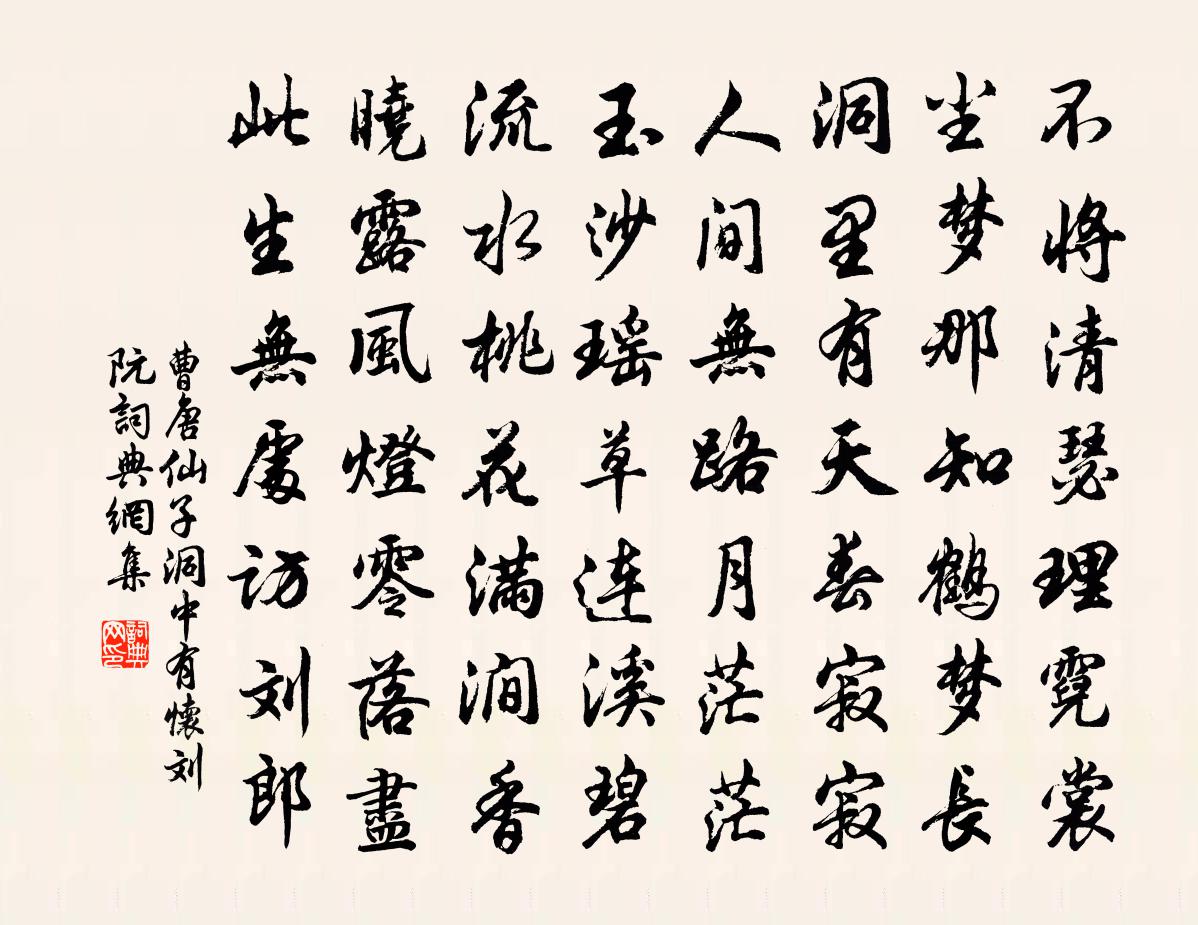 不将清瑟理霓裳
尘梦那知鹤梦長
洞里有天春寂寂
人间無路月茫茫
玉沙瑶草連溪碧
流水桃花满澗香
曉露風燈零落盡
此生無處访刘郎
曹唐仙子洞中有懷刘
阮詞典網集
詞典
网印